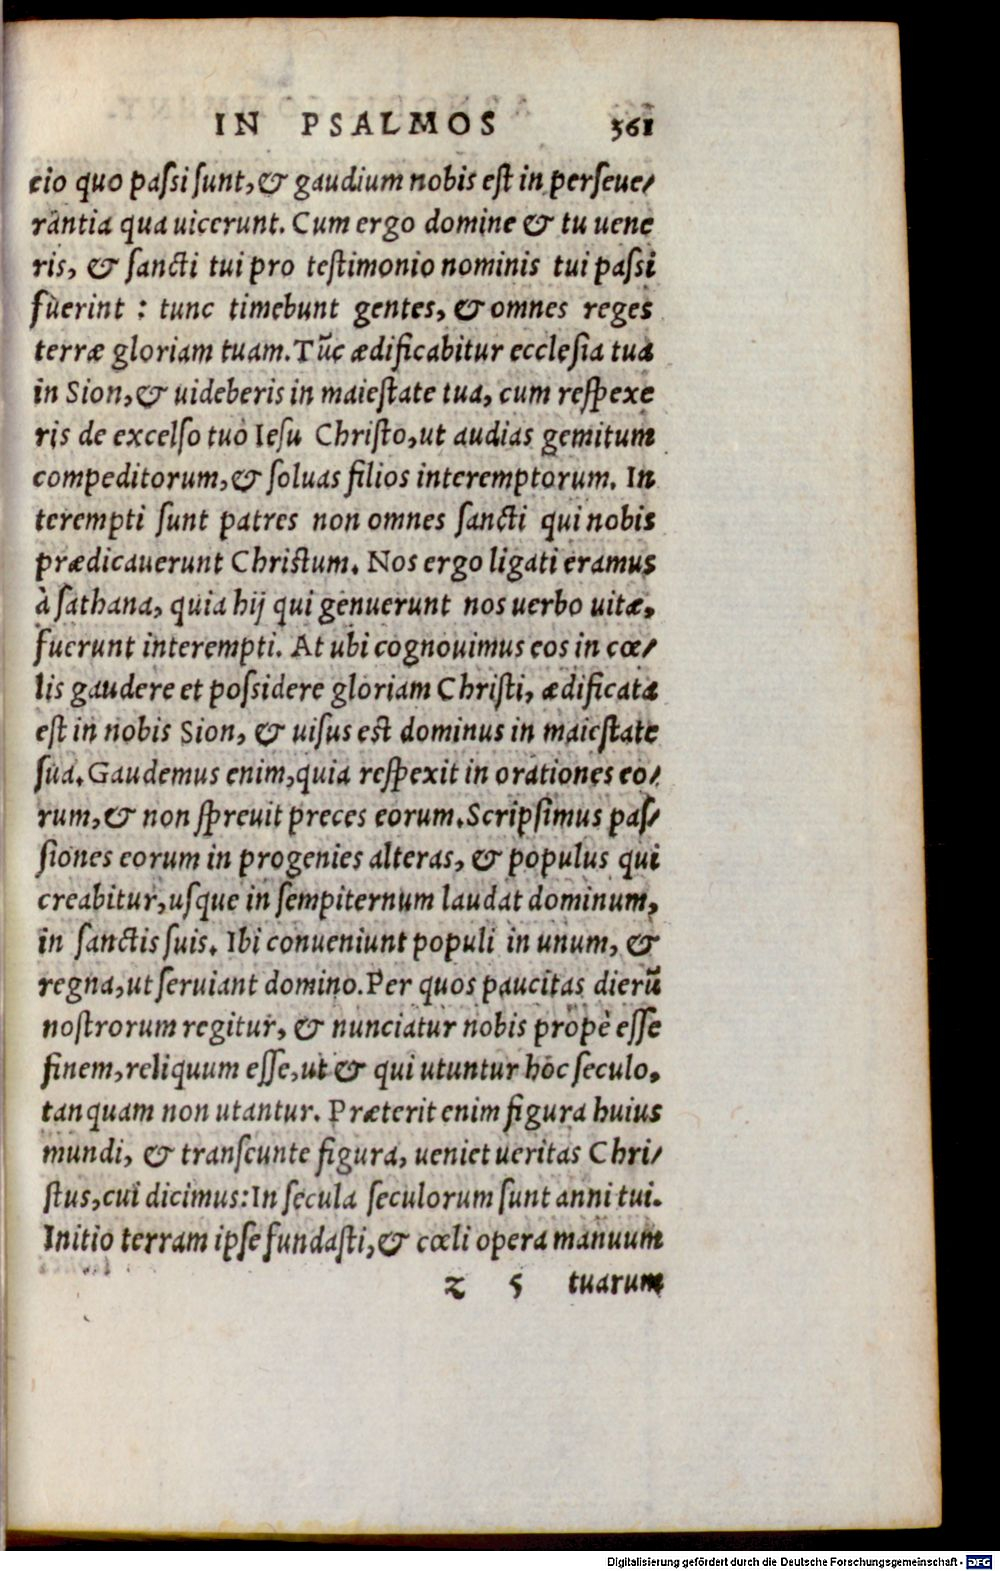 IN PSALMOS 361
cio quo paſsi ſunt, & gaudium nobis eſt in perſeue/
rantia qua uicerunt. Cum ergo domine & tu uene
ris, & ſancti tui pro teſtimonio nominis tui paſsi
fuerint : tunc timebunt gentes, & omnes reges
terræ gloriam tuam. Tūc ædificabitur eccleſia tua
in Sion, & uideberis in maieſtate tua, cum reſpexe
ris de excelſo tuo Ieſu Chriſto, ut audias gemitum
compeditorum, & ſoluas filios interemptorum. In
terempti ſunt patres non omnes ſancti qui nobis
prædicauerunt Chriſtum. Nos ergo ligati eramus
à ſathana, quia hij qui genuerunt nos uerbo uitæ,
fuerunt interempti. At ubi cognouimus eos in cœ/
lis gaudere et poſsidere gloriam Chriſti, ædificata
eſt in nobis Sion, & uiſus eſt dominus in maieſtate
ſua. Gaudemus enim, quia reſpexit in orationes eo/
rum, & non ſpreuit preces eorum. Scripſimus paſ/
ſiones eorum in progenies alteras, & populus qui
creabitur, uſque in ſempiternum laudat dominum,
in ſanctis ſuis. Ibi conueniunt populi in unum, &
regna, ut ſeruiant domino. Per quos paucitas dierū
noſtrorum regitur, & nunciatur nobis propè eſſe
finem, reliquum eſſe, ut & qui utuntur hoc ſeculo,
tanquam non utantur. Præterit enim figura huius
mundi, & tranſeunte figura, ueniet ueritas Chri/
ſtus, cui dicimus: In ſecula ſeculorum ſunt anni tui.
Initio terram ipſe fundaſti, & cœli opera manuum
z 5 tuarum
Digitalisierung gefördert durch die Deutsche Forschungsgemeinschaft - DFG